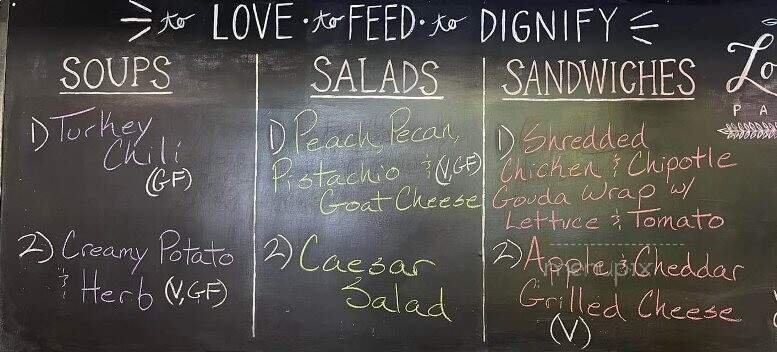 to LOVE · to FEED · to DIGNIFY
SOUPS
1) Turkey
Chili
(GF)
2) Creamy Potato
& Herb (V, GF)
SALADS
1) Peach, Pecan,
Pistachio & (V, GF)
Goat Cheese
2) Caesar
Salad
SANDWICHES
1) Shredded
Chicken & Chipotle
Gouda Wrap w/
Lettuce & Tomato
2) Apple & Cheddar
Grilled Cheese
(V)
Lo
P A
menupix